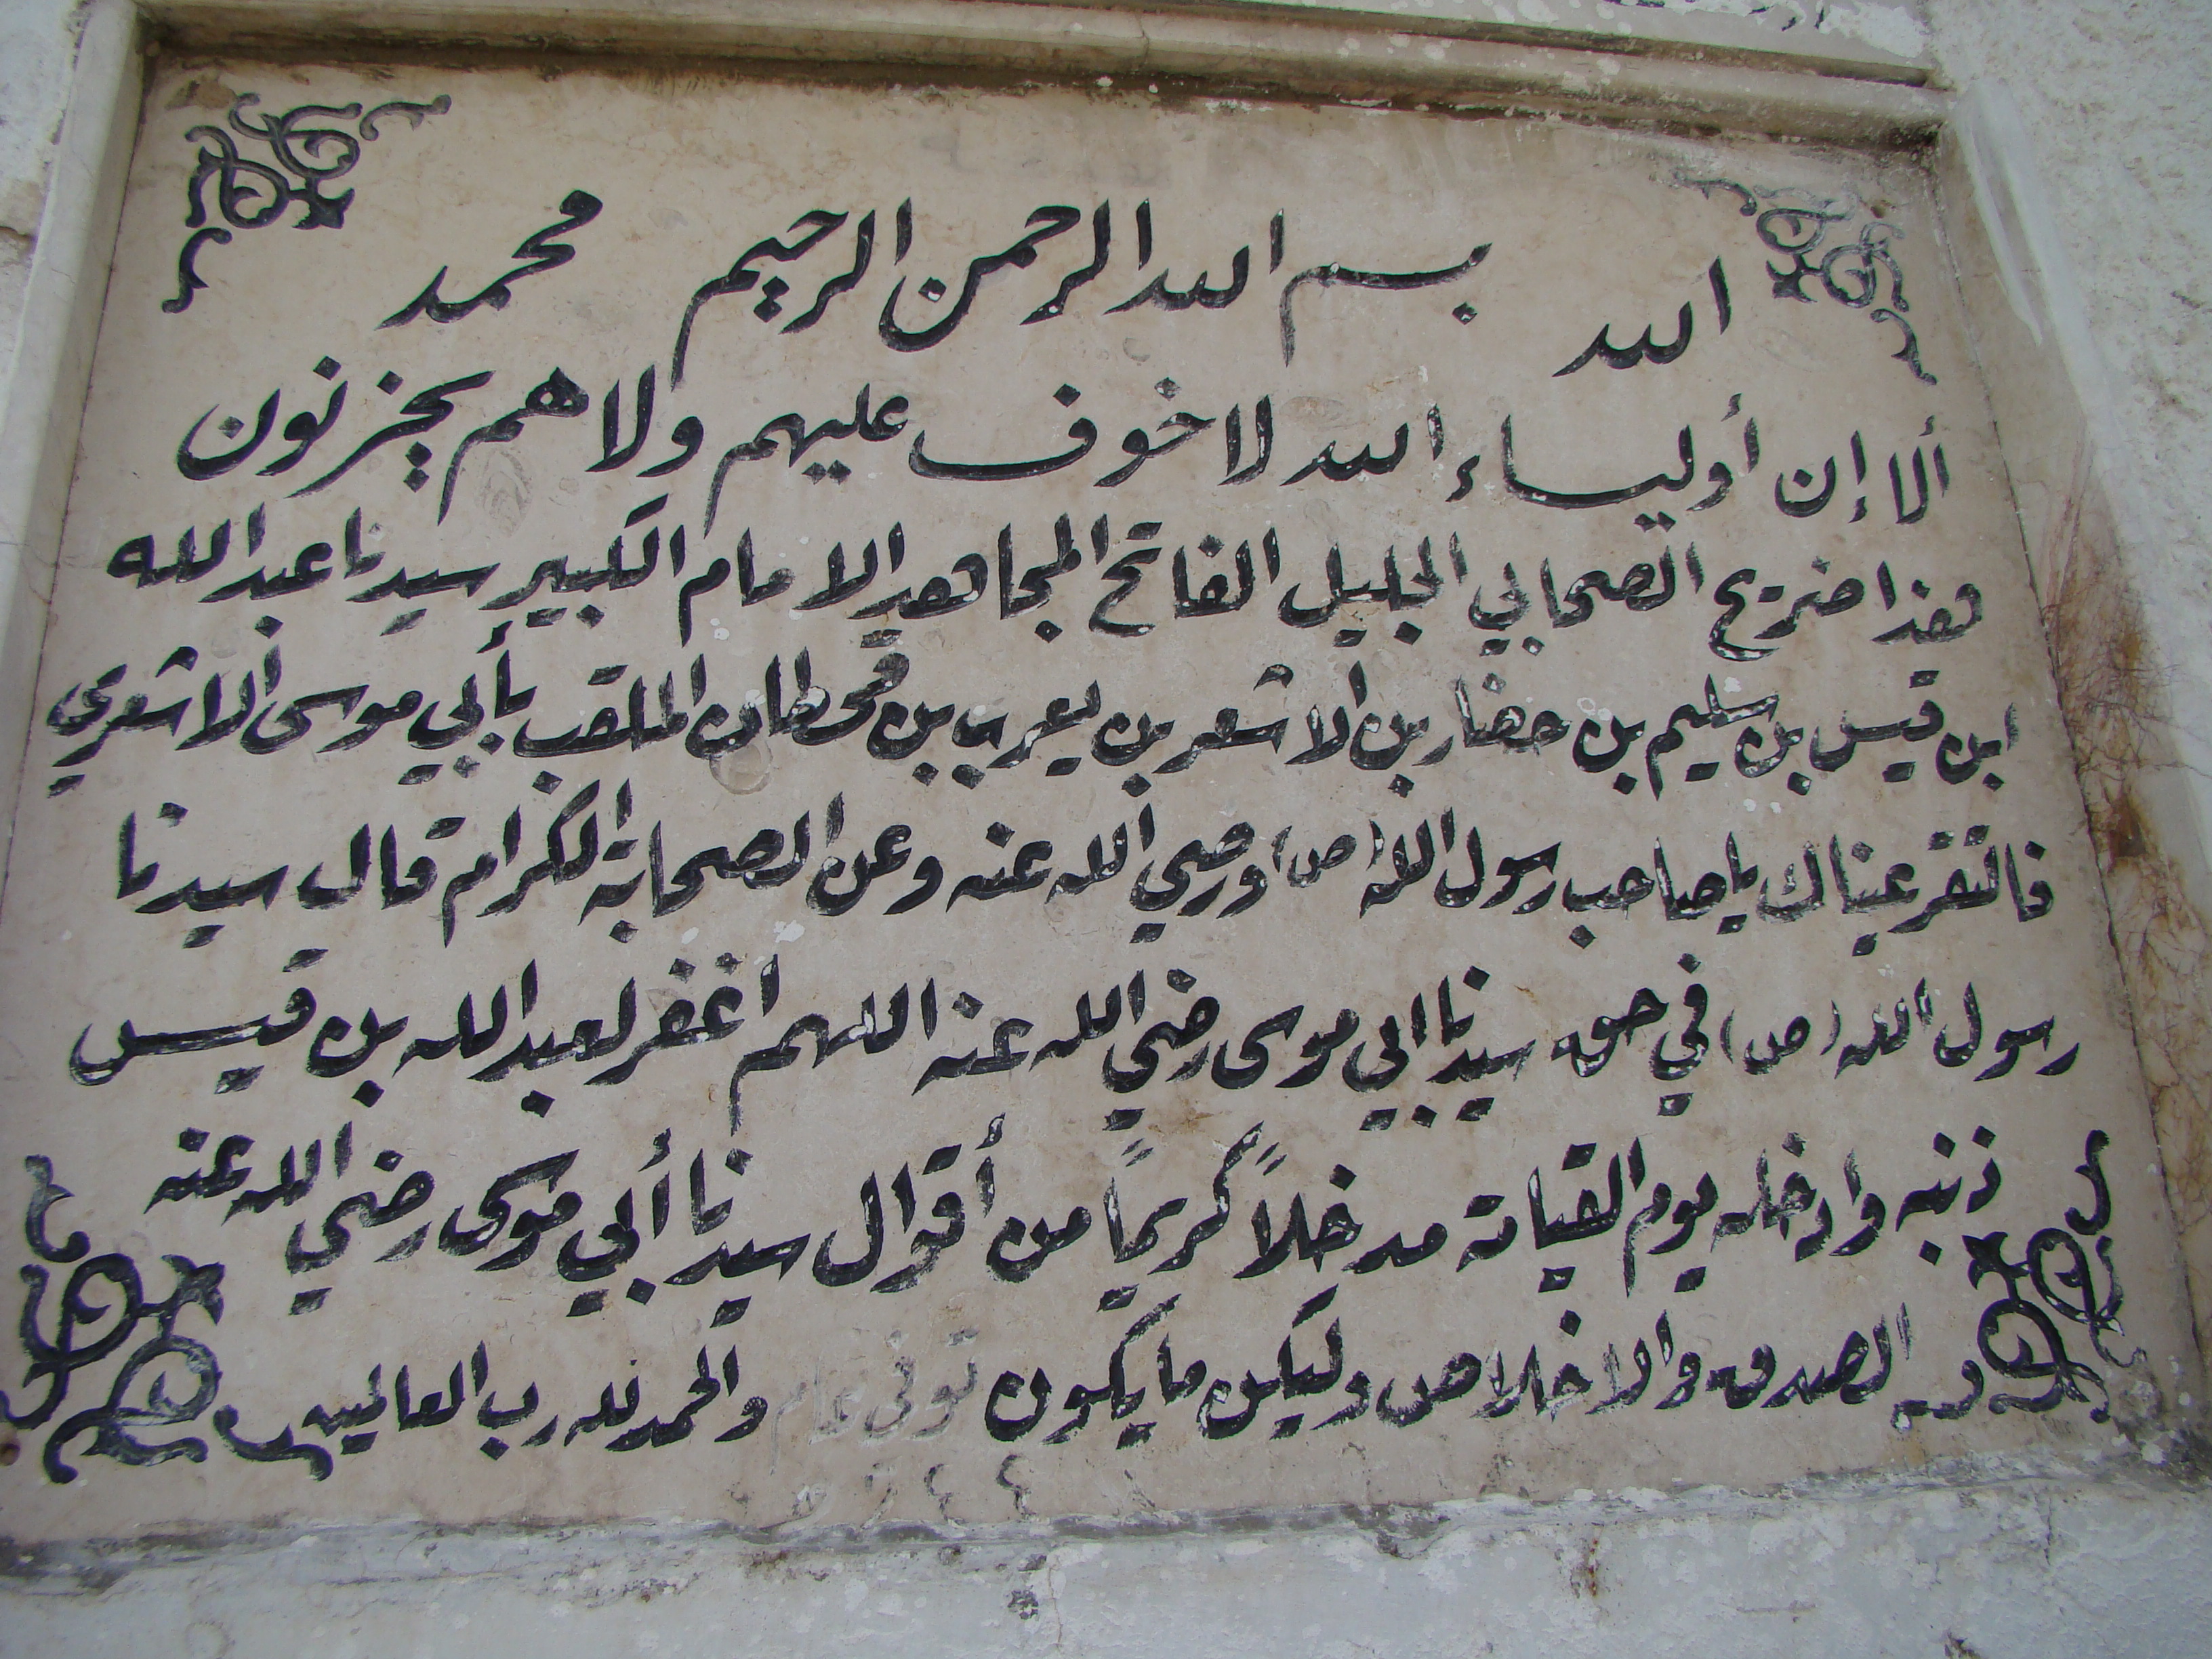 الله بسم الله الرحمن الرحيم محمد
ألا إن أولياء الله لا خوف عليهم ولا هم يحزنون
هذا ضريح الصحابي الجليل الفاتح المجاهد الامام الكبير سيدنا عبد الله
ابن قيس بن سليم بن حضار بن الاشعر بن يعرب بن قحطان الملقب بأبي موسى الاشعري
فالتقر عيناك يا صاحب رسول الله (ص) ورضي الله عنه وعن الصحابة الكرام قال سيدنا
رسول الله (ص) في حق سيدنا ابي موسى رضي الله عنه اللهم اغفر لعبد الله بن قيس
ذنبه وادخله يوم القيامة مدخلاً كريماً من أقوال سيدنا أبي موسى رضي الله عنه
الصدق والاخلاص وليكن ما يكون توفي عام والحمد لله رب العالمين